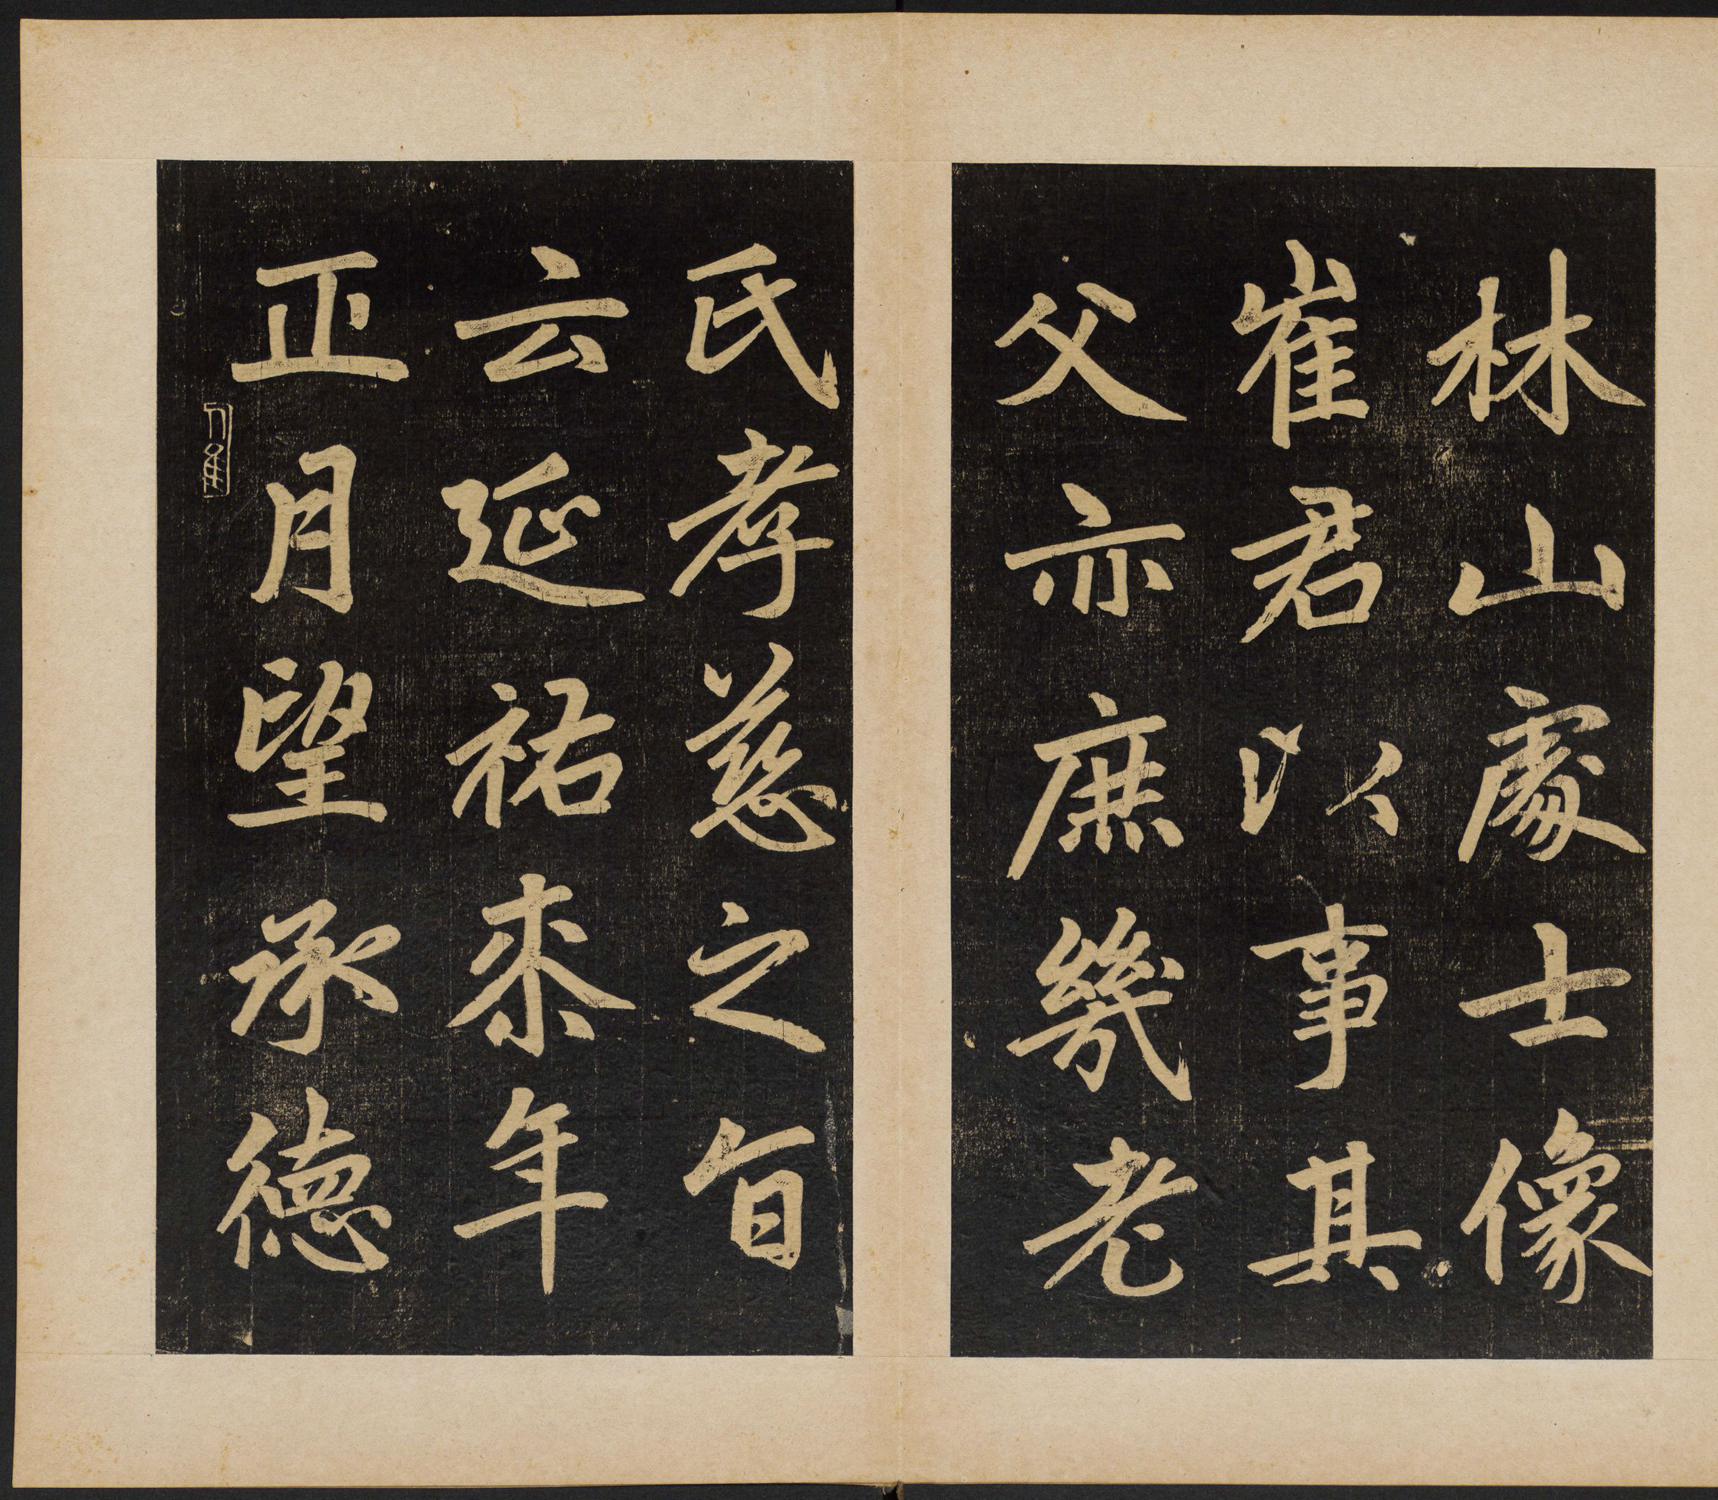 林山處士像
崔君以事其
父亦庶幾老
氏孝慈之旨
云延祐柰年
正月望承德